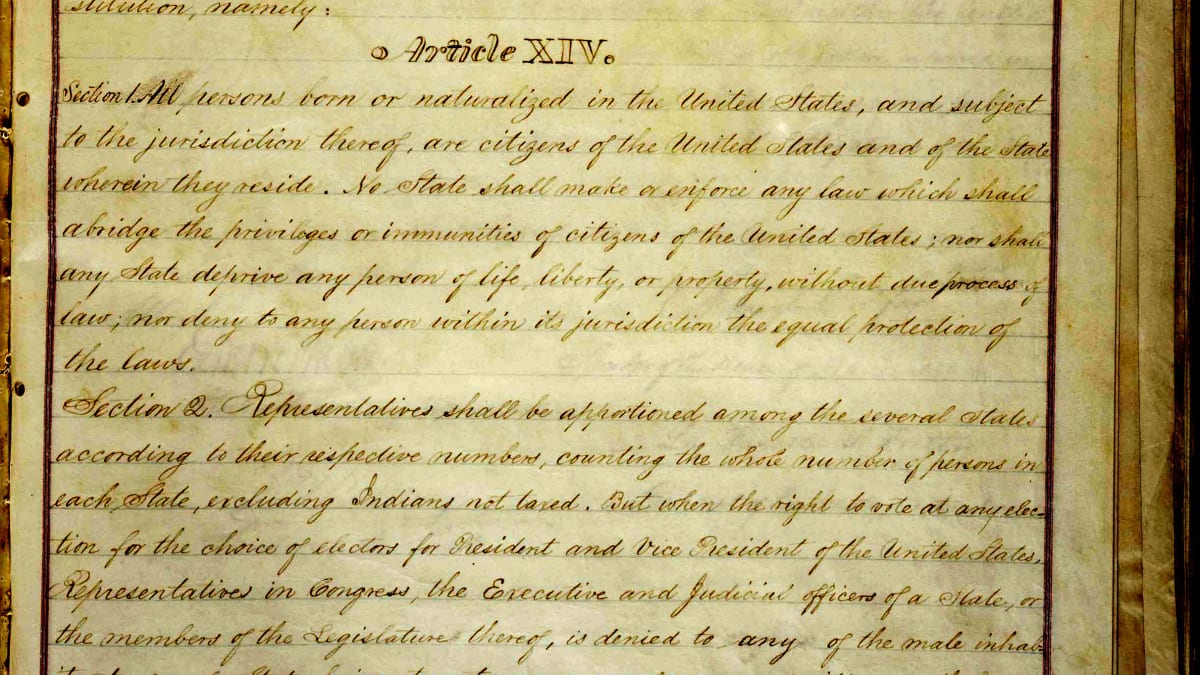 stitution, namely:
Article XIV.
Section 1. All persons born or naturalized in the United States, and subject
to the jurisdiction thereof, are citizens of the United States and of the State
wherein they reside. No State shall make or enforce any law which shall
abridge the privileges or immunities of citizens of the United States; nor shall
any State deprive any person of life, liberty, or property, without due process of
law; nor deny to any person within its jurisdiction the equal protection of
the laws.
Section 2. Representatives shall be apportioned among the several States
according to their respective numbers, counting the whole number of persons in
each State, excluding Indians not taxed. But when the right to vote at any elec-
tion for the choice of electors for President and Vice President of the United States,
Representatives in Congress, the Executive and Judicial officers of a State, or
the members of the Legislature thereof, is denied to any of the male inhab-